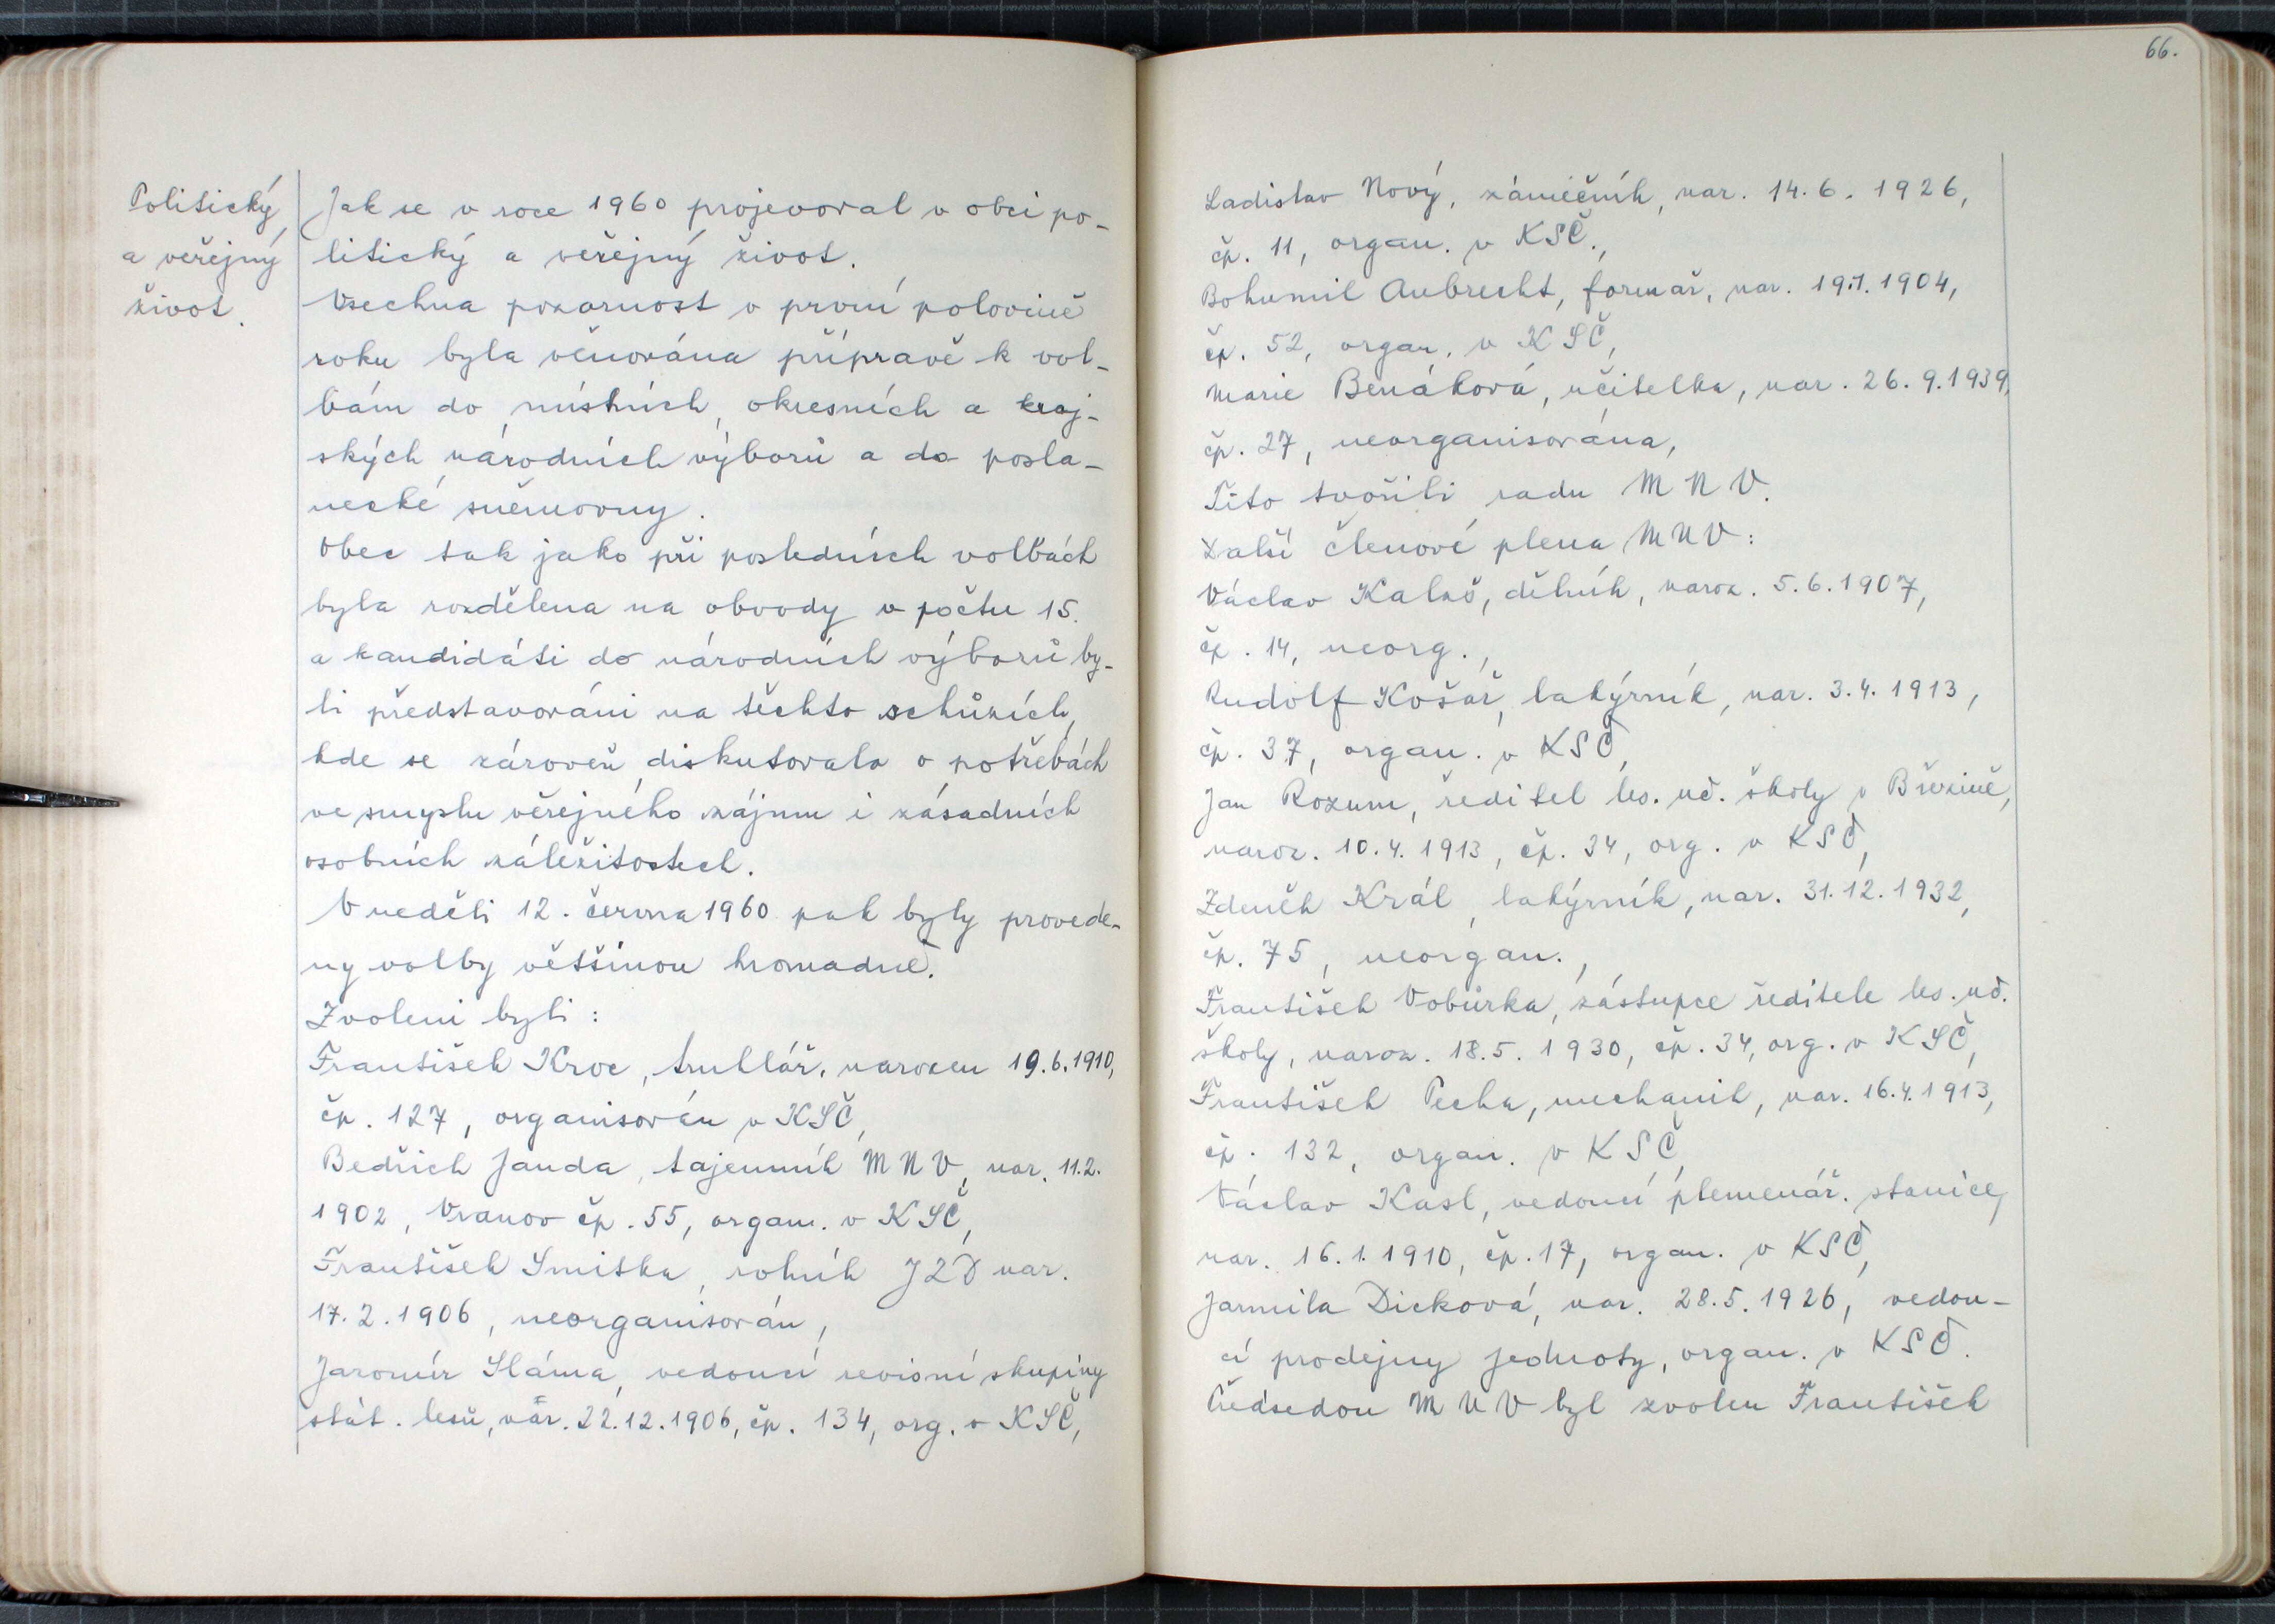 Politický
a veřejný
život.
Jak se v roce 1960 projevoval v obci po-
litický a veřejný život.
Všechna pozornost v první polovině
roku byla věnována přípravě k vol-
bám do místních, okresních a kraj-
ských národních výborů a do posla-
necké sněmovny.
Obec tak jako při posledních volbách
byla rozdělena na obvody v počtu 15.
a kandidáti do národních výborů by-
li představováni na těchto schůzích,
kde se zároveň diskutovalo o potřebách
ve smyslu věřejného zájmu i zásadních
osobních záležitostech.
V neděli 12. června 1960 pak byly provede-
ny volby většinou hromadně.
Zvoleni byli:
František Kroc, truhlář, narozen 19.6.1910,
čp. 127, organisován v KSČ,
Bedřich Janda, tajemník MNV, nar. 11.2.
1902, Vranov čp. 55, organ. v KSČ,
František Smitka, rolník JZD nar.
17.2.1906, neorganisován,
Jaromír Sláma, vedoucí revisní skupiny
stát. lesů, nar. 22.12.1906, čp. 134, org. v KSČ,
66.
Ladislav Nový, zámečník, nar. 14.6.1926,
čp. 11, organ. v KSČ.,
Bohumil Aubrecht, formař, nar. 19.1.1904,
čp. 52, organ. v KSČ,
Marie Benáková, učitelka, nar. 26.9.1939,
čp. 27, neorganisována,
Tito tvořili radu MNV.
Další členové plena MNV:
Václav Kalaš, dělník, naroz. 5.6.1907,
čp. 14, neorg.,
Rudolf Košař, lakýrník, nar. 3.4.1913,
čp. 37, organ. v KSČ,
Jan Rozum, ředitel les. uč. školy v Březině,
naroz. 10.4.1913, čp. 34, org. v KSČ,
Zdeněk Král, lakýrník, nar. 31.12.1932,
čp. 75, neorgan.,
František Vobůrka, zástupce ředitele les. uč.
školy, naroz. 18.5.1930, čp. 34, org. v KSČ,
František Pecha, mechanik, nar. 16.4.1913,
čp. 132, organ. v KSČ,
Václav Kasl, vedoucí plemenář. stanice,
nar. 16.1.1910, čp. 17, organ. v KSČ,
Jarmila Dicková, nar. 28.5.1926, vedou-
cí prodejny Jednoty, organ. v KSČ.
Předsedou MNV byl zvolen František